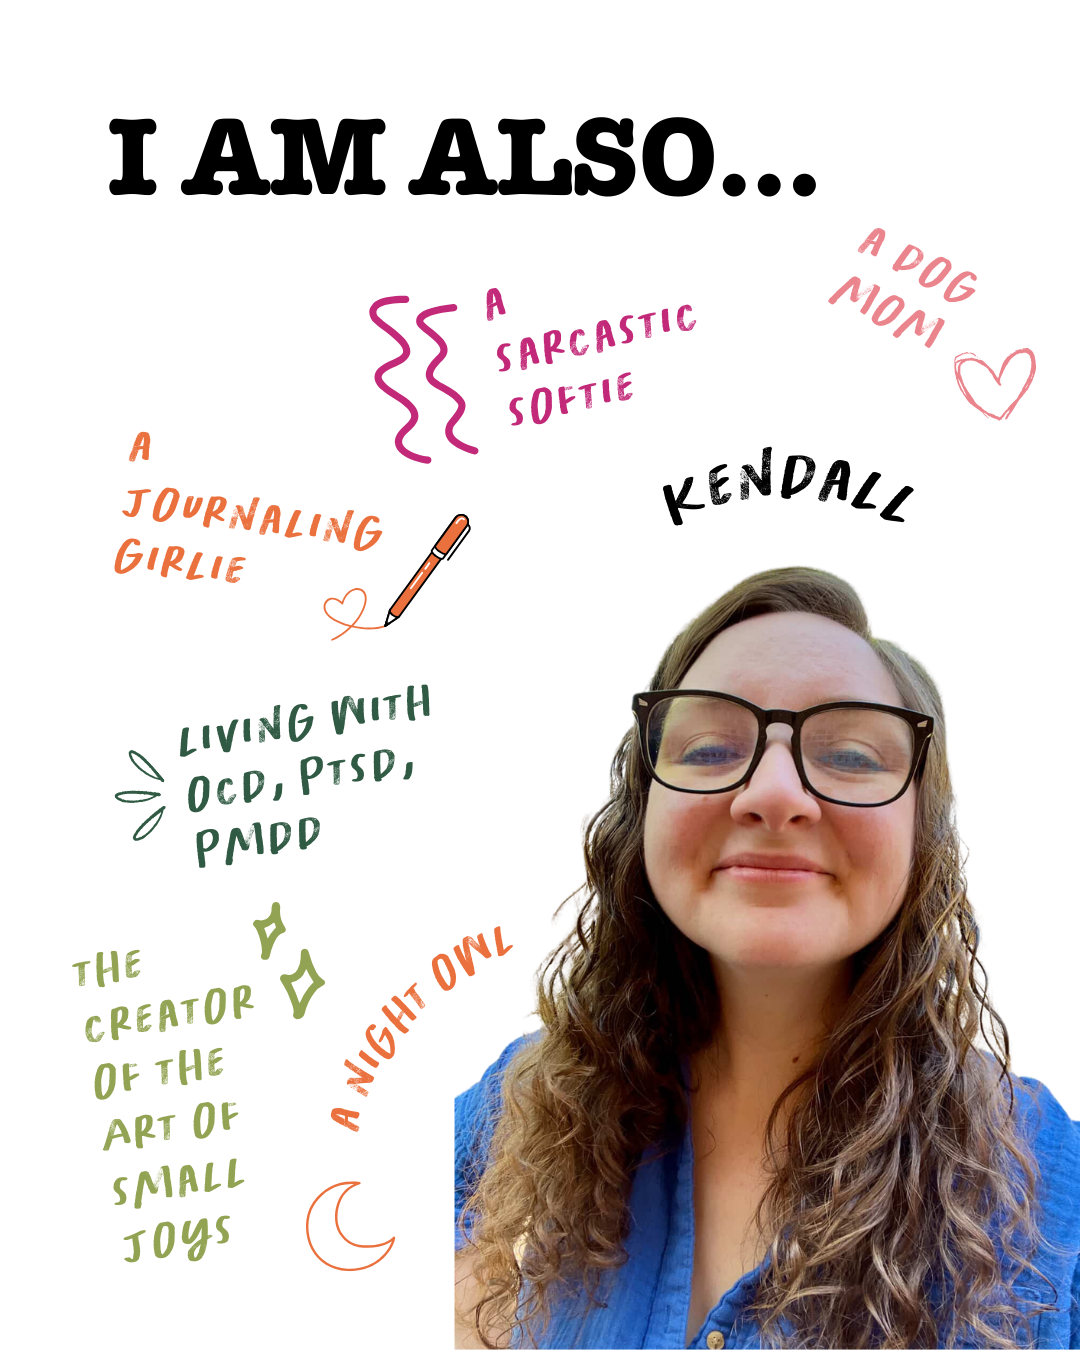 I AM ALSO...
A DOG
MOM
A
SARCASTIC
SOFTIE
A
JOURNALING
GIRLIE
KENDALL
LIVING WITH
OCD, PTSD,
PMDD
THE
CREATOR
OF THE
ART OF
SMALL
JOYS
A NIGHT OWL